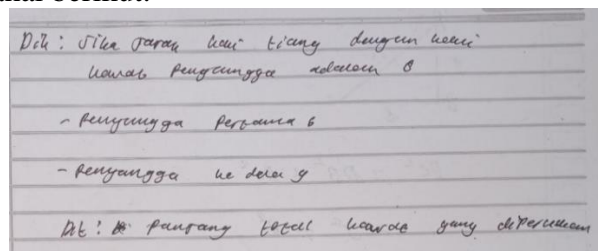 Dik : Jika Jarak kaki tiang dengan kaki
kawat Penyangga adalah 8
- Penyangga Pertama 6
- Penyangga ke dua 9
Dit : Panjang total kawat yang diperlukan